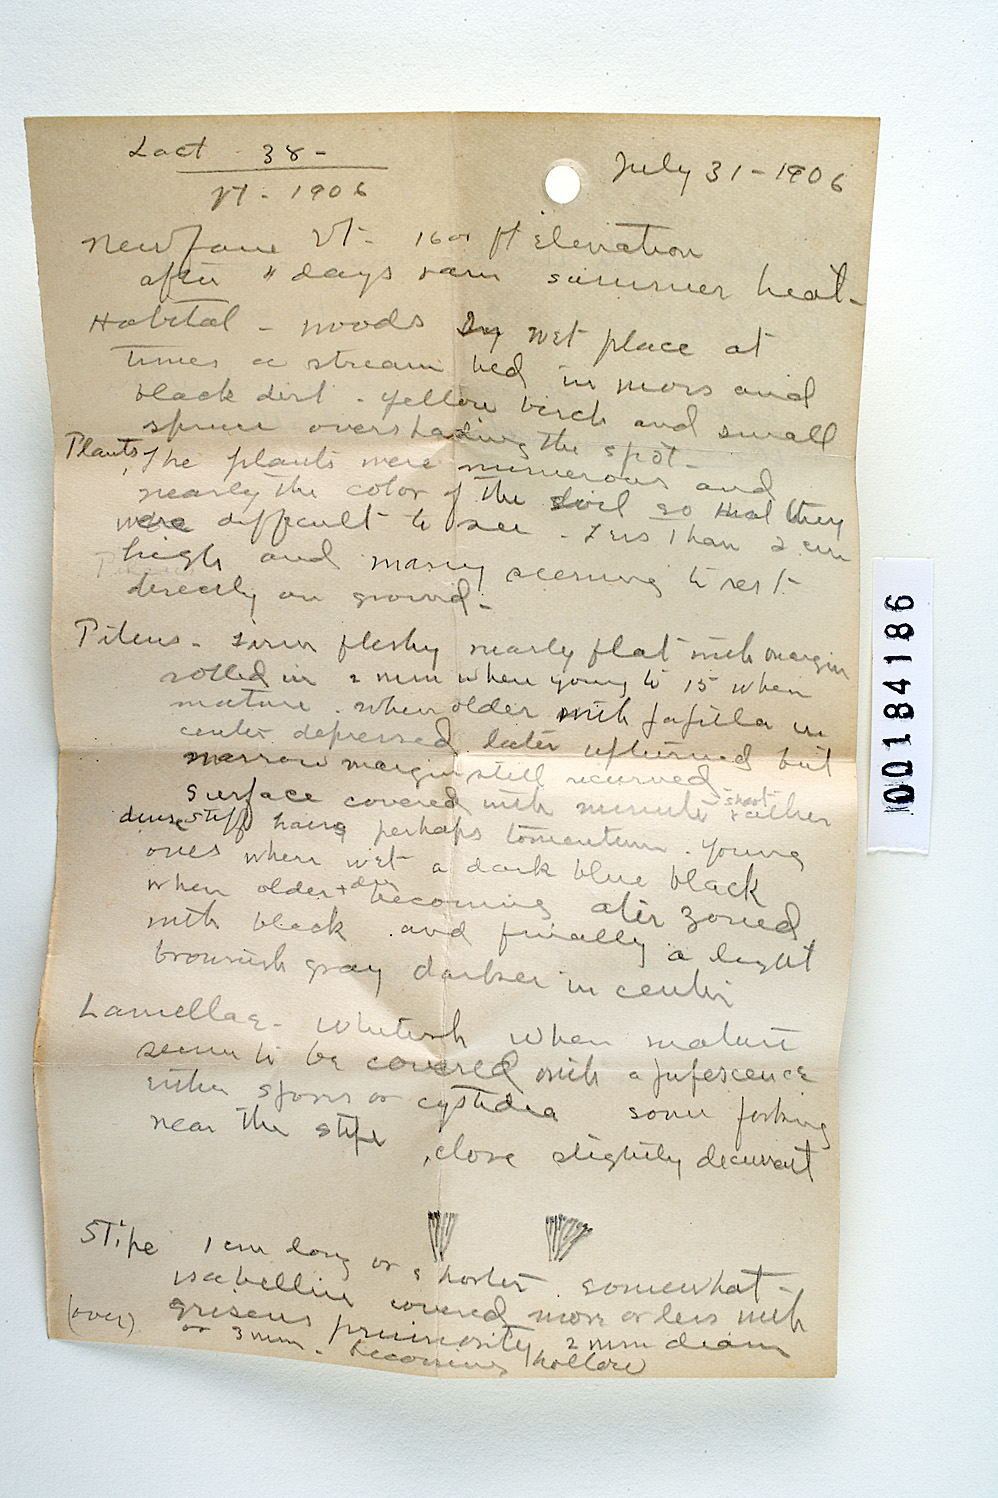 Lact 38 -
Vt - 1906
July 31 - 1906
Newfane Vt - 1600 ft Elevation
after 4 days rain summer heat -
Habitat - woods in wet place at
times a stream bed in moss and
black dirt - yellow birch and small
spruce overshading the spot -
Plants, The plants were numerous and
nearly the color of the soil so that they
were difficult to see - Less than 2 cm
high and many seeming to rest
directly on ground -
Pileus - firm fleshy nearly flat with margin
rolled in 2 mm when young to 15 when
mature . when older with papilla in
center depressed later upturned but
narrow margin still recurved
Surface covered with minute short rather
dense stiff hairs perhaps tomentum . Young
ones when wet a dark blue black
when older + dry becoming zoned
with black and finally a light
brownish gray darker in center
Lamellae - Whitish when mature
seem to be covered with a pubescence
either spores or cystidia some forking
near the stipe , close slightly decurrent
Stipe 1 cm long or shorter somewhat -
isabelline covered more or less with
griseus pruinosity 2 mm diam
(over) or 3 mm . becoming hollow
00184186